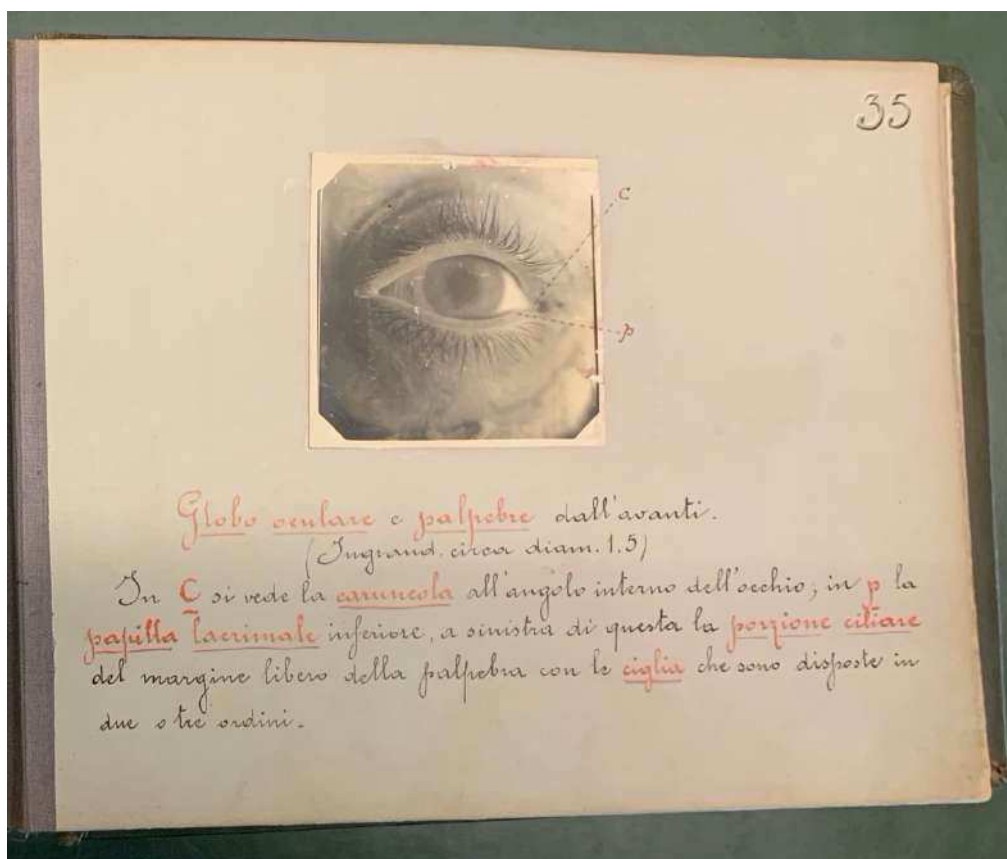 35
C
p
Globo oculare e palpebre dall'avanti.
(Ingrand. circa diam. 1.5)
In C si vede la caruncola all'angolo interno dell'occhio; in p la
papilla lacrimale inferiore, a sinistra di questa la porzione ciliare
del margine libero della palpebra con le ciglia che sono disposte in
due o tre ordini.